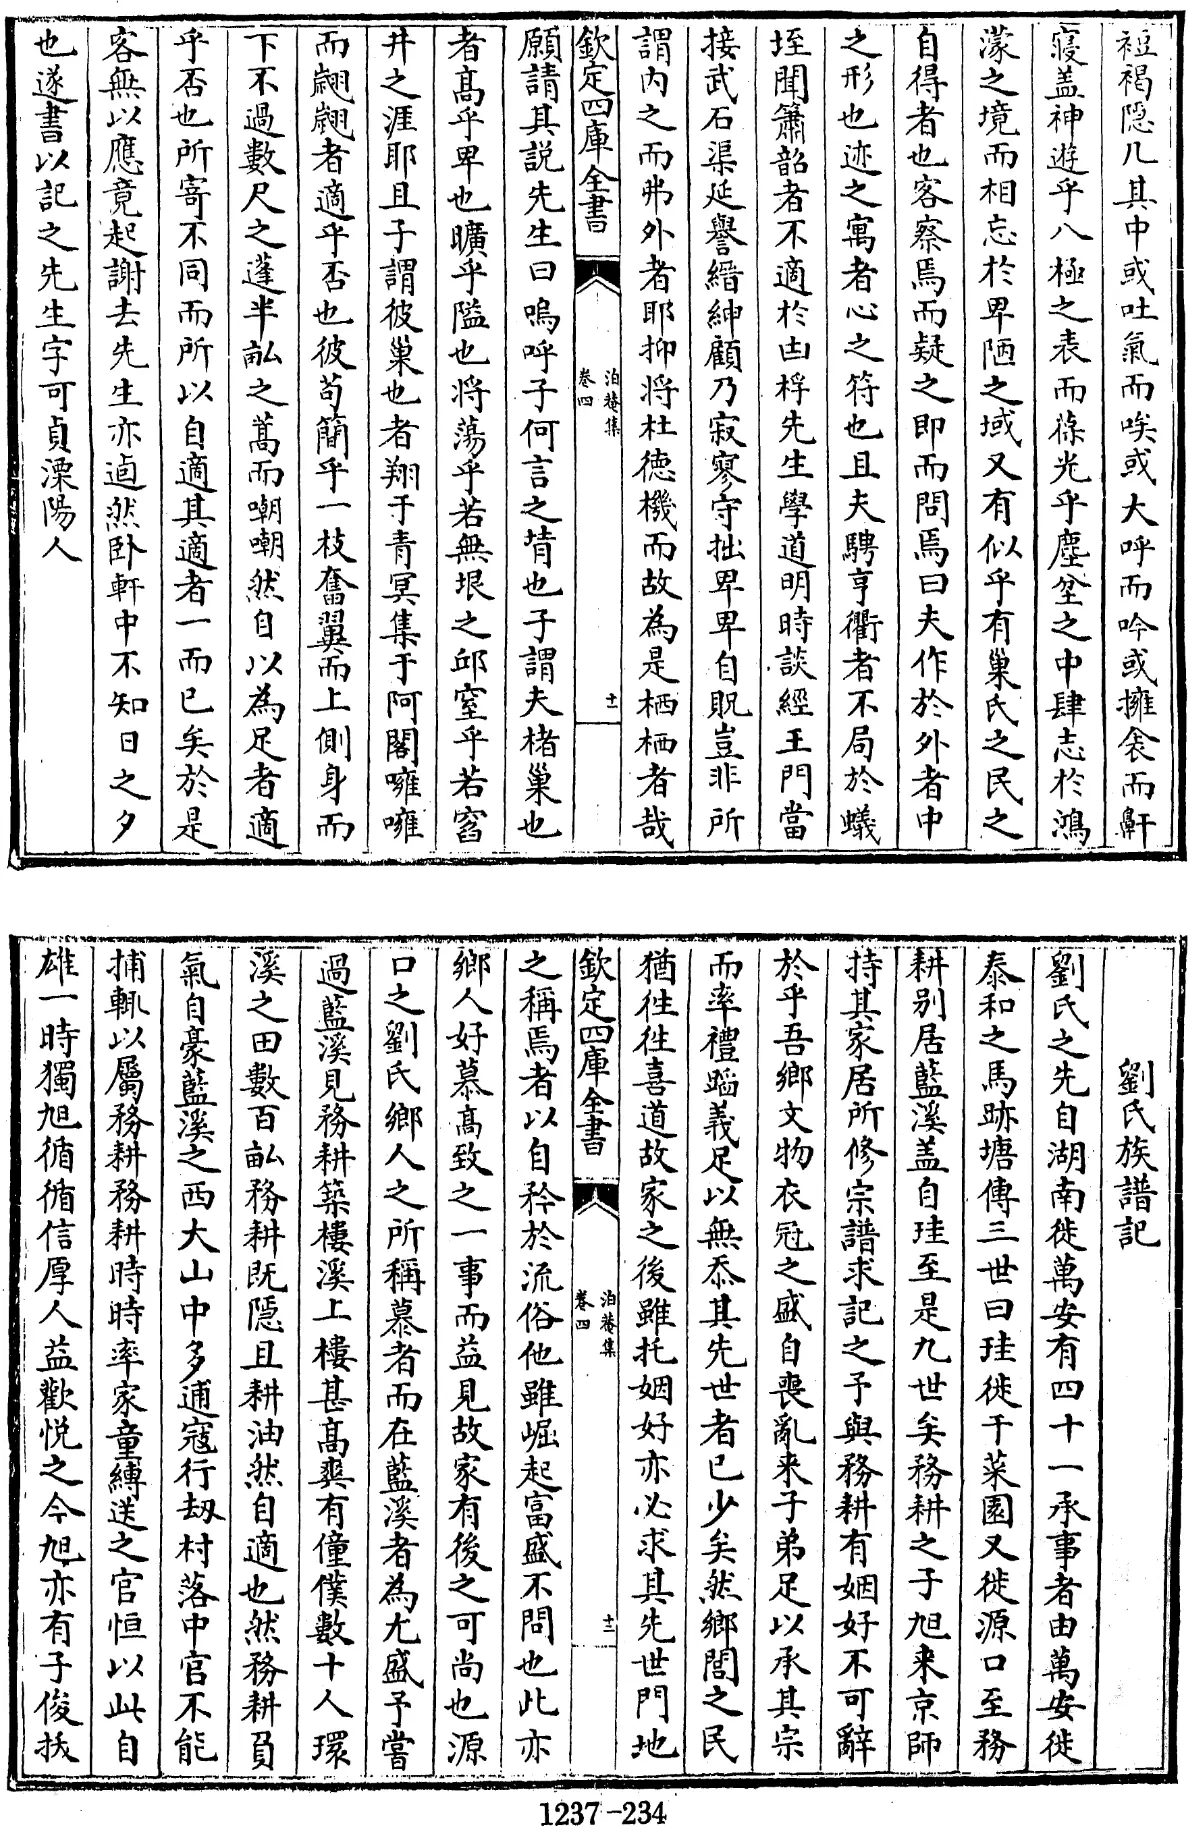 裋褐隠几其中或吐氣而唉或大呼而吟或擁衾而鼾
寢盖神遊乎八極之表而葆光乎塵坌之中肆志於鴻
濛之境而相忘於卑陋之域又有似乎有巢氏之民之
自得者也客察焉而疑之即而問焉曰夫作於外者中
之形也迹之寓者心之符也且夫騁亨衢者不局於蟻
垤聞簫韶者不適於凷桴先生學道明時談經王門當
接武石渠延譽縉紳顧乃寂寥守拙卑卑自貺豈非所
謂内之而弗外者耶抑将杜德機而故為是栖栖者哉
欽定四庫全書
泊菴集
卷四
十一
願請其説先生曰嗚呼子何言之㫺也子謂夫橧巢也
者髙乎卑也曠乎隘也将蕩乎若無垠之邱窒乎若窞
井之涯耶且子謂彼巢也者翔于青冥集于阿閣噰噰
而翽翽者適乎否也彼茍簡乎一枝奮翼而上側身而
下不過數尺之蓬半畝之蒿而嘲嘲然自以為足者適
乎否也所寄不同而所以自適其適者一而已矣於是
客無以應竟起謝去先生亦逌然卧軒中不知日之夕
也遂書以記之先生字可貞溧陽人
劉氏族譜記
劉氏之先自湖南徙萬安有四十一承事者由萬安徙
泰和之馬跡塘傳三世曰珪徙干菜園又徙源口至務
耕别居藍溪盖自珪至是九世矣務耕之子旭来京師
持其家居所修宗譜求記之予與務耕有姻好不可辭
於乎吾鄉文物衣冠之盛自喪亂来子弟足以承其宗
而率禮蹈義足以無忝其先世者已少矣然鄉閭之民
猶徃徃喜道故家之後雖托姻好亦必求其先世門地
欽定四庫全書
泊菴集
卷四
十二
之稱焉者以自矜於流俗他雖崛起富盛不問也此亦
鄉人好慕髙致之一事而益見故家有後之可尚也源
口之劉氏鄉人之所稱慕者而在藍溪者為尤盛予嘗
過藍溪見務耕築樓溪上樓甚髙爽有僮僕數十人環
溪之田數百畝務耕既隠且耕油然自適也然務耕負
氣自豪藍溪之西大山中多逋寇行刼村落中官不能
捕輒以屬務耕務耕時時率家童縛送之官恒以此自
雄一時獨旭循循信厚人益歡悦之今旭亦有子俊拔
1237-234